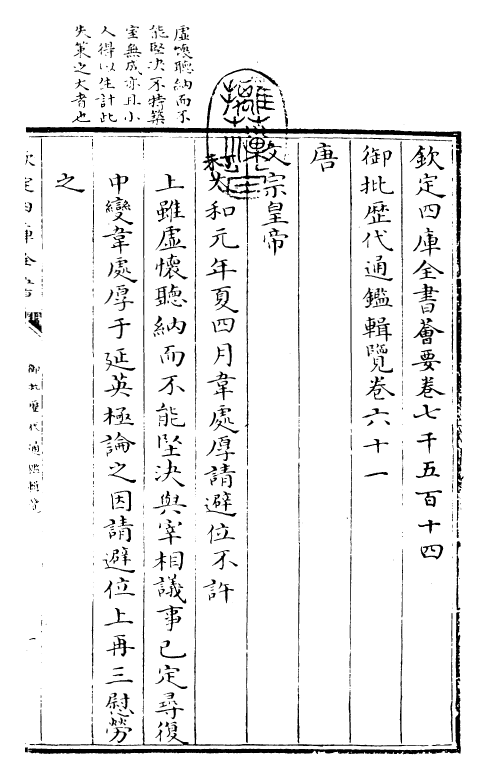 欽定四庫全書薈要卷七千五百十四
御批歷代通鑑輯覽卷六十一
唐
文宗皇帝
太和元年夏四月韋處厚請避位不許
上雖虛懷聽納而不能堅決與宰相議事已定尋復
中變韋處厚于延英極論之因請避位上再三慰勞
之
虛懷聽納而不
能堅決不特築
室無成亦且小
人得以生計此
失策之大者也
欽定四庫全書
御批歷代通鑑輯覽
一